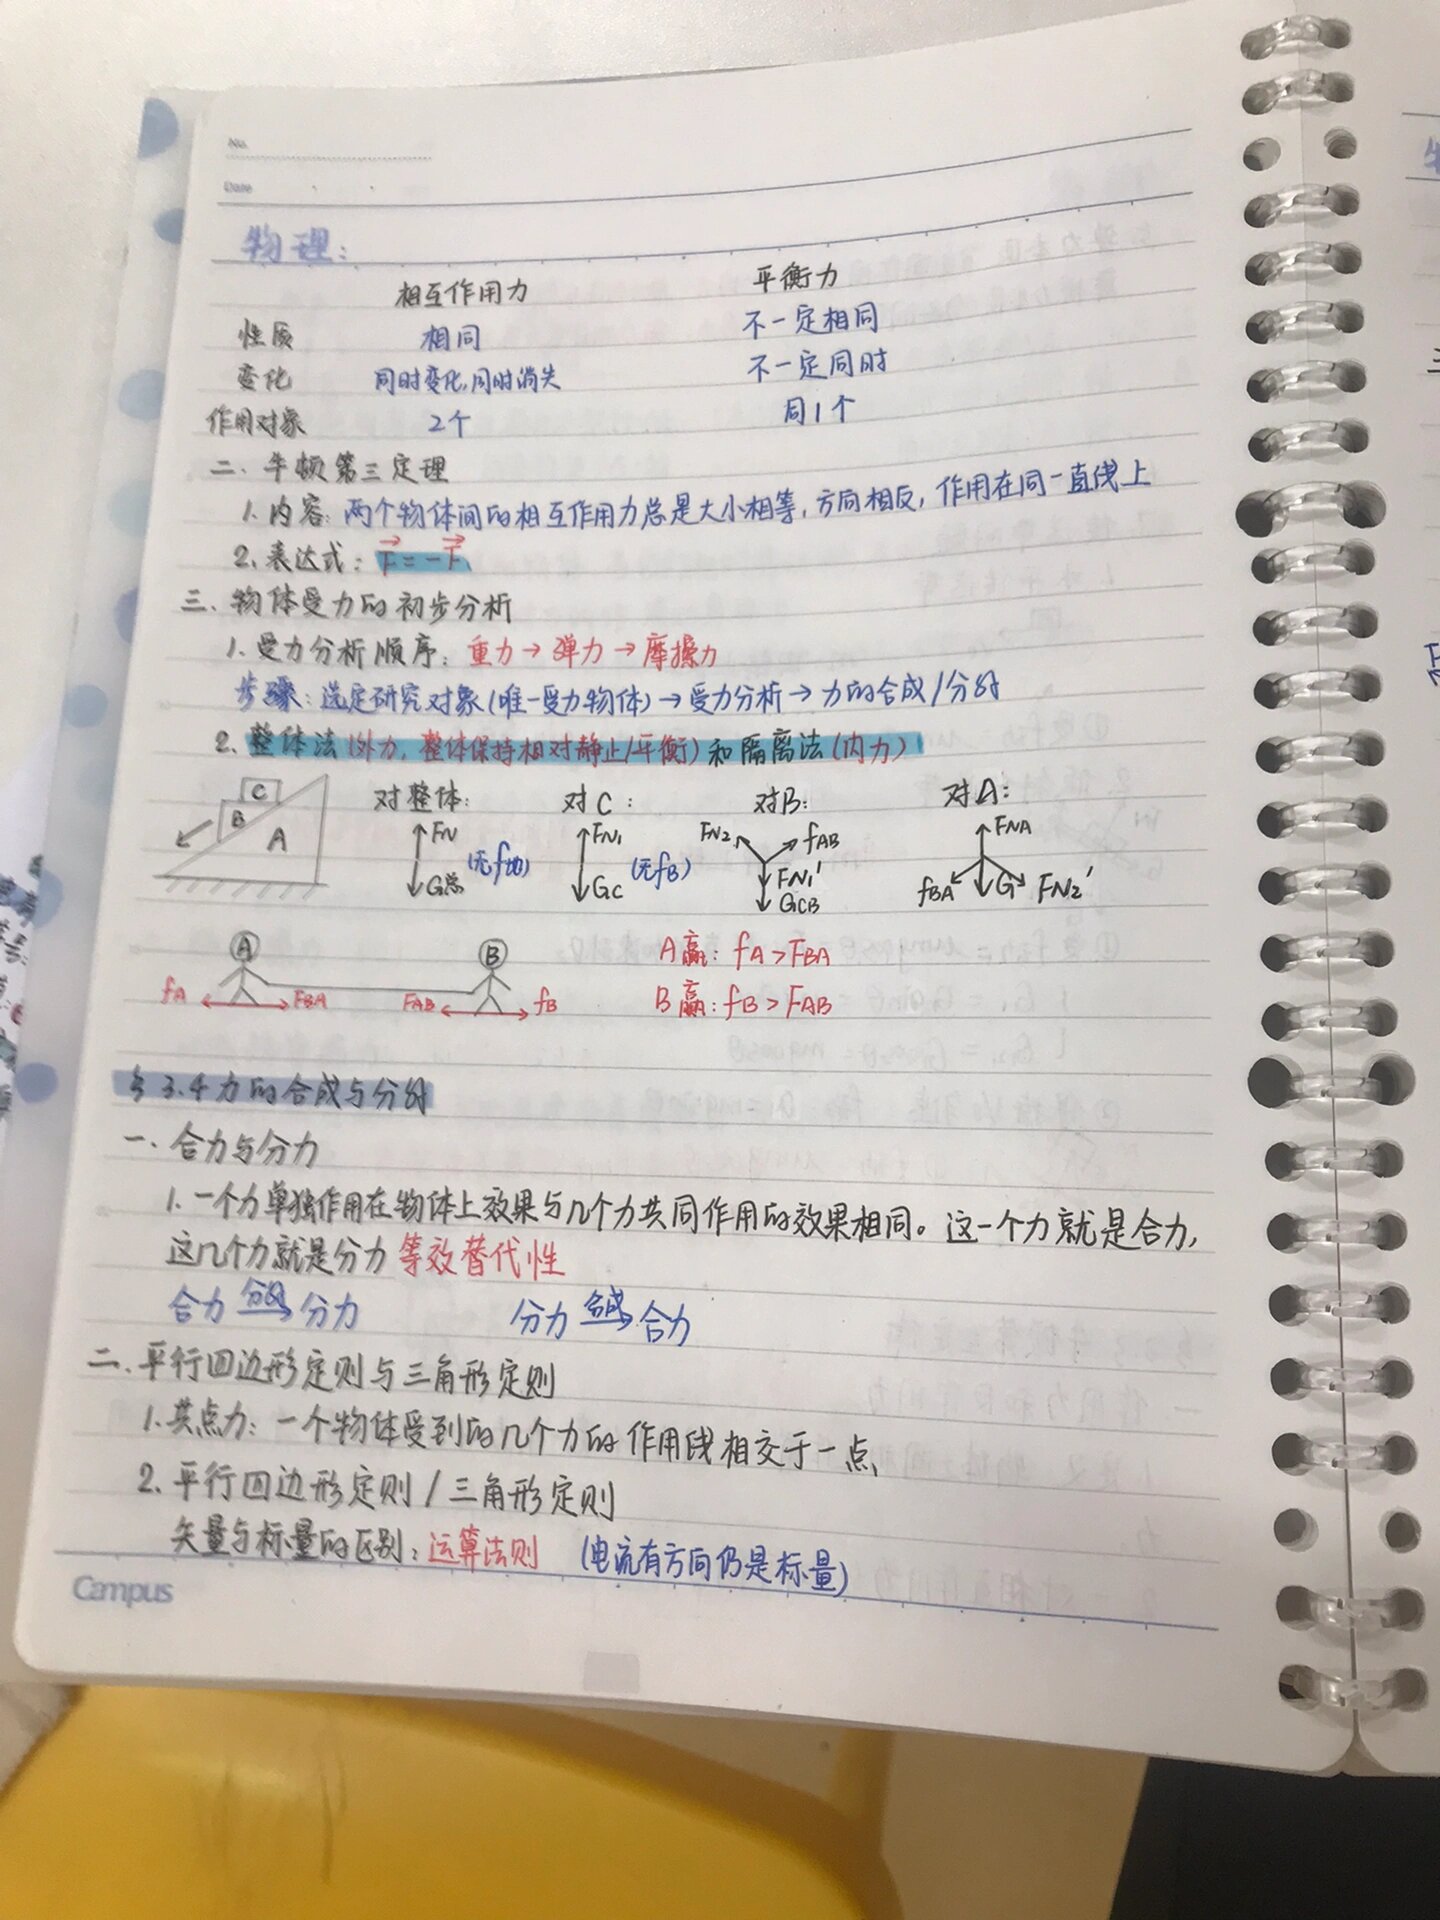 No.
Date
物理：
相互作用力 平衡力
性质 相同 不一定相同
变化 同时变化,同时消失 不一定同时
作用对象 2个 同1个
二.牛顿第三定理
1.内容:两个物体间的相互作用力总是大小相等,方向相反,作用在同一直线上
2.表达式：F=-F
三.物体受力的初步分析
1.受力分析顺序：重力→弹力→摩擦力
步骤：选定研究对象(唯一受力物体)→受力分析→力的合成/分解
2.整体法(外力,整体保持相对静止/平衡)和隔离法(内力)
C B A
对整体: FN G总 (无f地)
对C: FN1 GC (无fB)
对B: FN2 fAB FN1' GCB
对A: FNA fBA G FN2'
A B
fA FBA FAB fB
A赢: fA>FBA
B赢: fB>FAB
§3.4力的合成与分解
一.合力与分力
1.一个力单独作用在物体上效果与几个力共同作用的效果相同。这一个力就是合力,
这几个力就是分力 等效替代性
合力 分解→ 分力 分力 合成→ 合力
二.平行四边形定则与三角形定则
1.共点力：一个物体受到的几个力的作用线相交于一点
2.平行四边形定则/三角形定则
矢量与标量的区别：运算法则 (电流有方向仍是标量)
Campus